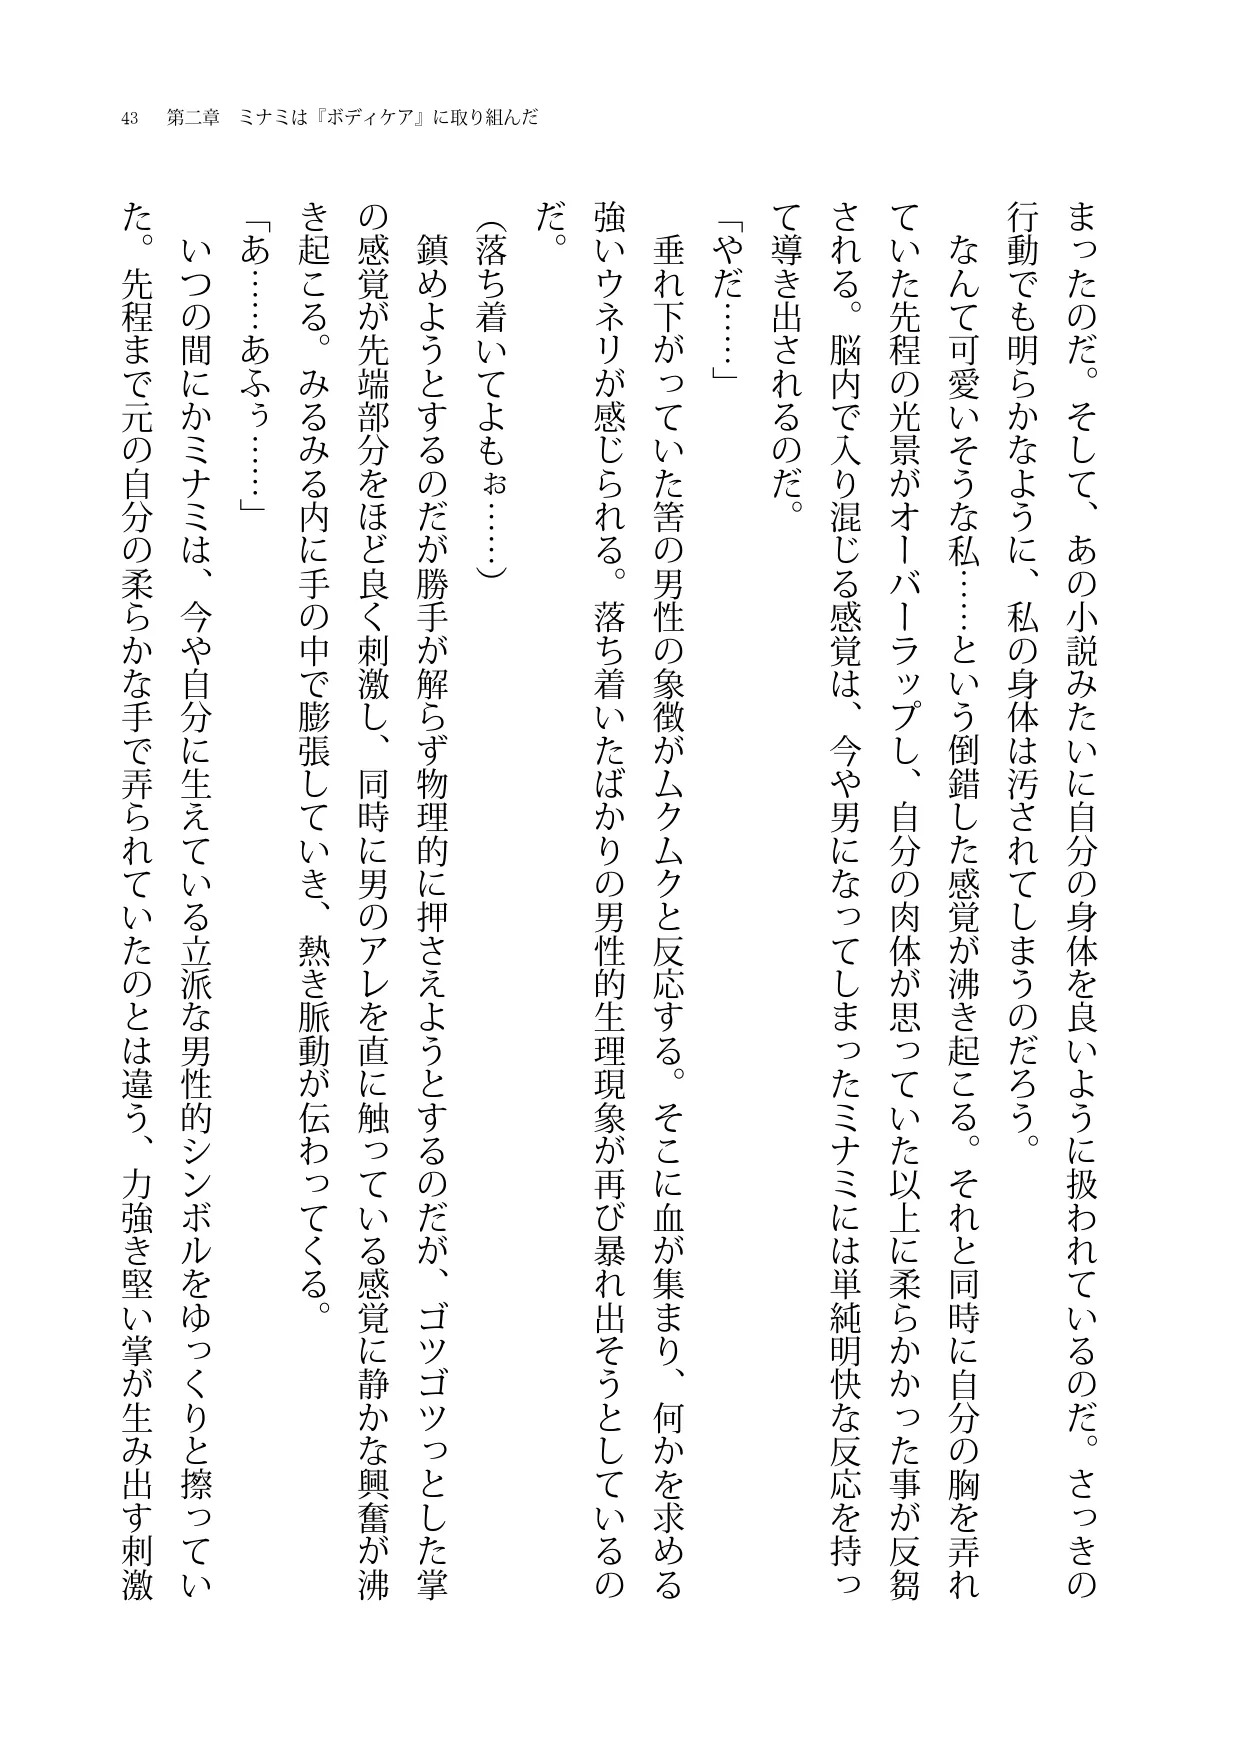 43　第二章　ミナミは『ボディケア』に取り組んだ
まったのだ。そして、あの小説みたいに自分の身体を良いように扱われているのだ。さっきの
行動でも明らかなように、私の身体は汚されてしまうのだろう。
　なんて可愛いそうな私……という倒錯した感覚が沸き起こる。それと同時に自分の胸を弄れ
ていた先程の光景がオーバーラップし、自分の肉体が思っていた以上に柔らかかった事が反芻
される。脳内で入り混じる感覚は、今や男になってしまったミナミには単純明快な反応を持っ
て導き出されるのだ。
「やだ……」
　垂れ下がっていた筈の男性の象徴がムクムクと反応する。そこに血が集まり、何かを求める
強いウネリが感じられる。落ち着いたばかりの男性的生理現象が再び暴れ出そうとしているの
だ。
（落ち着いてよもぉ……）
　鎮めようとするのだが勝手が解らず物理的に押さえようとするのだが、ゴツゴツっとした掌
の感覚が先端部分をほど良く刺激し、同時に男のアレを直に触っている感覚に静かな興奮が沸
き起こる。みるみる内に手の中で膨張していき、熱き脈動が伝わってくる。
「あ……あふぅ……」
　いつの間にかミナミは、今や自分に生えている立派な男性的シンボルをゆっくりと擦ってい
た。先程まで元の自分の柔らかな手で弄られていたのとは違う、力強き堅い掌が生み出す刺激